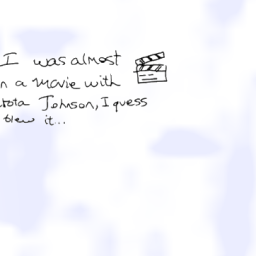 I was almost
n a movie with
kota Johnson, I guess
blew it...